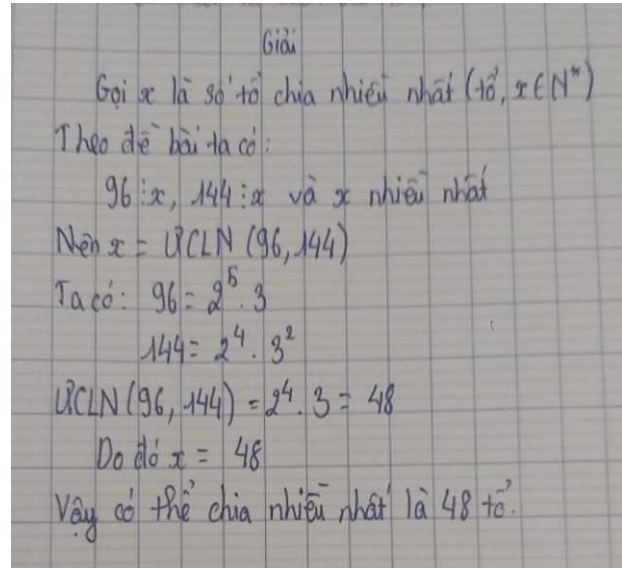 Giải
Gọi x là số tổ chia nhiều nhất (tổ, x ∈ N*)
Theo đề bài ta có:
96 ⋮ x, 144 ⋮ x và x nhiều nhất
Nên x = ƯCLN (96, 144)
Ta có: 96 = 2⁵ . 3
144 = 2⁴ . 3²
ƯCLN (96, 144) = 2⁴ . 3 = 48
Do đó x = 48
Vậy có thể chia nhiều nhất là 48 tổ.